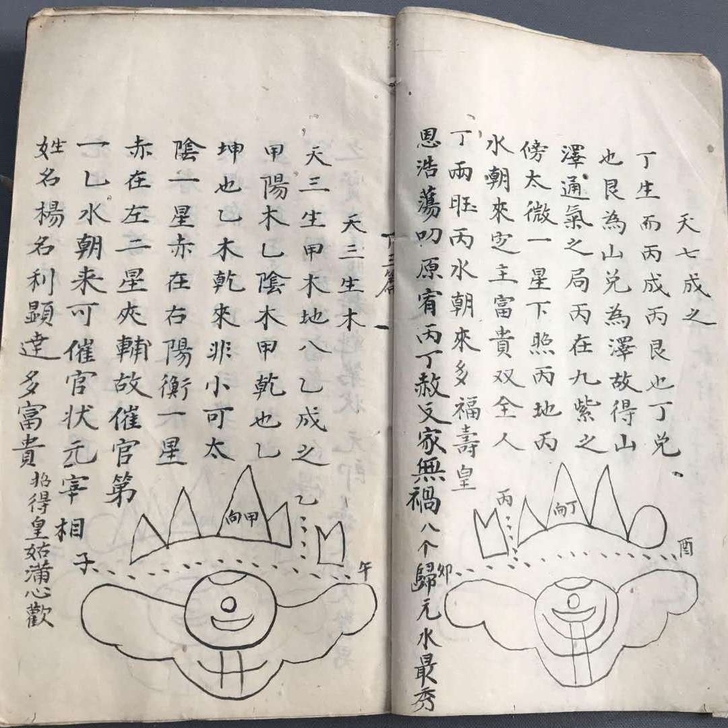 天七成之
丁生而丙成丙艮也丁兑
也艮為山兑為澤故得山
澤通氣之局丙在九紫之
傍太微一星下照丙地丙
水朝來定主富貴双全人
丁兩旺丙水朝來多福壽皇
恩浩蕩叨原宥丙丁赦文家無禍八个歸元水最秀
丙
向丁
酉
卯
下三篇
天三生木
天三生甲木地八乙成之
甲陽木乙陰木甲乾也乙
坤也乙木乾來非小可太
陰一星赤在右陽衡一星
赤在左二星夾輔故催官第
一乙水朝来可催官状元宰相
姓名楊名利顯達多富貴招得皇姑满心歡
乙
向甲
午
子